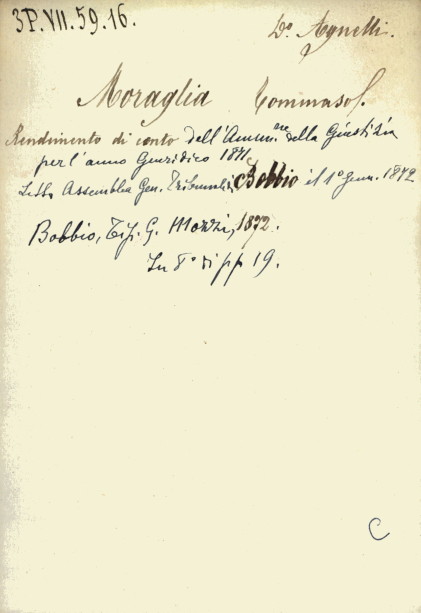 3P.VII.59.16.
Do. Agnelli.
Moraglia Tommaso f.
Rendimento di conto dell'Ammne della Giustizia
per l'anno Giuridico 1871,
Letto Assemblea Gen. Tribunale, Bobbio il 1° genn. 1872
Bobbio, Tip. G. Mozzi, 1872.
In 8° di pp 19.
C